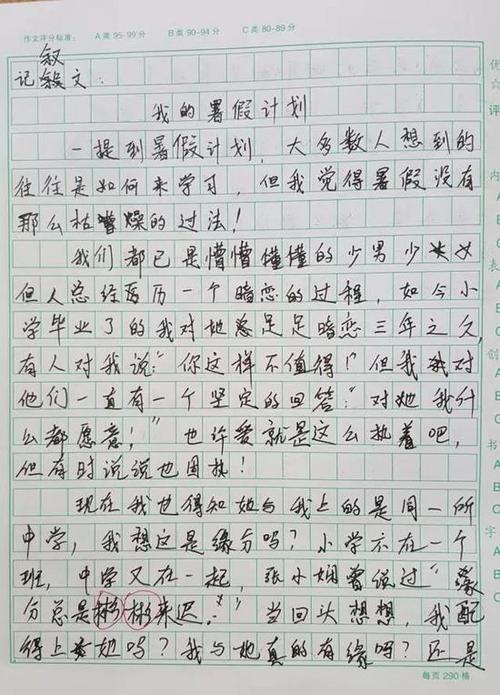 作文评分标准： A类 95-99分 B类 90-94分 C类 80-89分
叙
记叙文：
我的暑假计划
一提到暑假计划，大多数人想到的
往往是如何来学习，但我觉得暑假没有
那么枯噪燥的过法！
我们都已是懵懵懂懂的少男少女
但人总经历历一个暗恋的过程，如今小
学毕业了的我对她总足足暗恋三年之久
有人对我说："你这样不值得！"但我对
他们一直有一个坚定的回答："对她我什
么都愿意！"也许爱就是这么执着吧，
但有时说说也固执！
现在我也得知她与我上的是同一所
中学，我想这是缘分吗？小学亦在一个
班，中学又在一起，张小娴曾说过"缘
分总是彬彬来迟。"当回头想想，我配
得上她吗？我与她真的有缘吗？还是
每页290格
优
☆
评
内
A
B
C
表
A
B
C
创
A
B
C
字
A
B
C